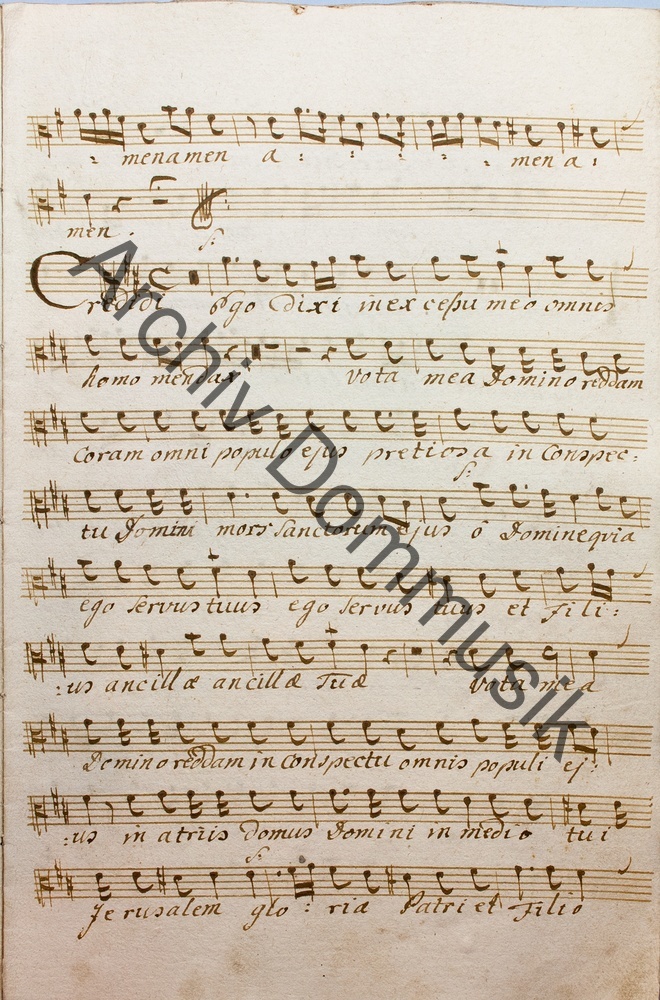 : menamen a : : : : : men a :
men.
f:
Credidi Ego Dixi in ex cessu meo omnis
homo mendax Vota mea Domino reddam
Coram omni populo ejus pretiosa in Conspec:
f:
tu Domini mors Sanctorum ejus ô Domine quia
ego Servus tuus ego Servus tuus et Fili:
:us ancillæ ancillæ Tuæ Vota mea
Domino reddam in Conspectu omnis populi ej:
:us in atriis Domus Domini in medio tui
f:
Jerusalem glo: ria Patri et Filio
Archiv Dommusik